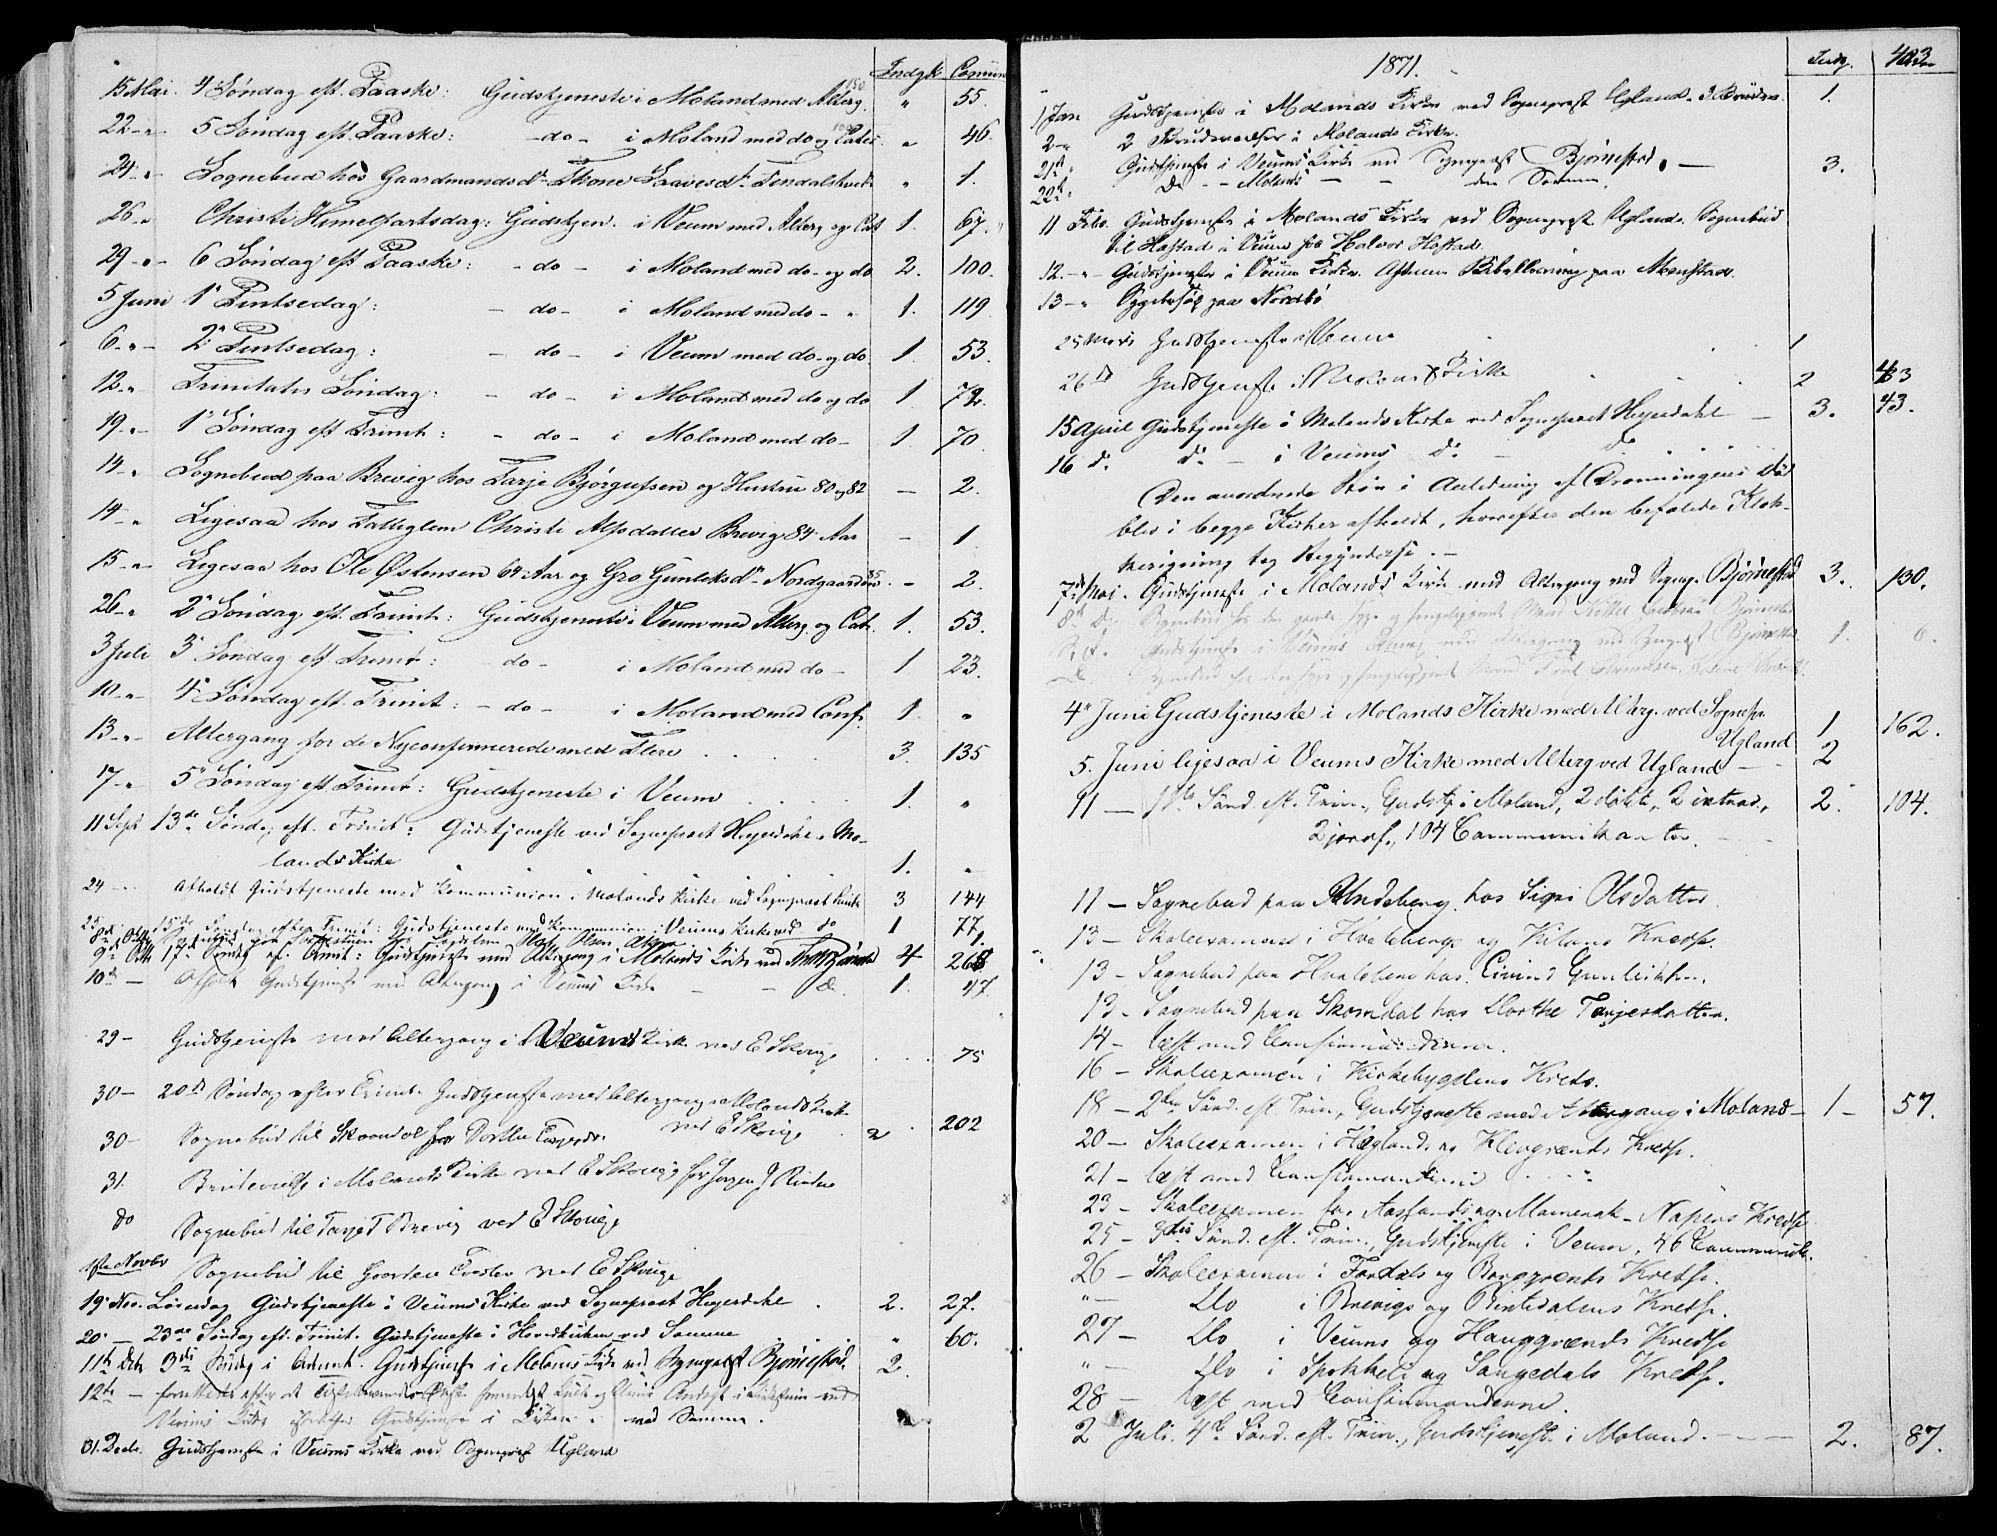 Indgk Commun
15 Mai. 4 Søndag eft. Paaske: Gudstjeneste i Moland med Alterg. " 55.
22 - " - 5 Søndag eft. Paaske: - do - i Moland med do og Catec. " 46.
24 - " - Sognebud hos Gaardmandsd. Thone " 1.
26 - " Christi Himelfartsdag: Gudstjen. i Veum med Alterg. og Cat. 1. 67.
29 - " - 6 Søndag eft Paaske: - do - i Moland med do - og do 2. 100.
5 Juni 1e Pintsedag: - do - i Moland med do - " 1. 119.
6 - " - 2e Pintsedag: - do - i Veum med do - og do 1. 53.
12 - " Trinitatis Søndag: - do - i Moland med do og do 1 72.
19 - " 1e Søndag eft Trinit: - do - i Moland med do - 1. 70
14 - " Sognebud paa Brevig hos Tarje Bjørgufsen og Hustru 80 og 82 - 2.
14 - " Ligesaa hos Fattiglem Christi Brevig 84 Aar - 1
15 - " Ligesaa hos Ole Østensen 64 Aar og Gro Gunleksd. - 2.
26 - " 2e Søndag eft. Trinit: Gudstjeneste i Veum med Alterg. og Cat. 1. 53.
3 Juli 3e Søndag eft Trinit: - do - i Moland med do - 1 23.
10 - " - 4e Søndag eft. Trinit: - do - i Moland med Conf. 1. "
13 - " - Altergang for de Nyconfirmerede med Flere 3. 135
17 - " 5e Søndag eft Trinit: Gudstjeneste i Veum 1. "
11 Sept 13de Søndag eft. Trinit: Gudstjeneste ved Sogneprest Heyerdahl i Mo-
lands Kirke 1. "
24 - Afholdt Gudstjeneste med Kommunion i Molands Kirke ved Sogneprest 3 144
25 15de Søndag efter Trinit: Gudstjeneste med Kommunion i Veums Kirke ved do 1 77
1.
9de Octb 17de Søndag ef. Trinit: Gudstjeneste med Altergang i Molands Kirke ved 4 268
10de - Afholdt Gudstjeneste med Altergang i Veums Kirke - - do. 1. 47.
29 - Gudstjeneste med Altergang i Veums Kirke ved E Skouge 75
30 - 20de Søndag efter Trinit. Gudstjeneste med Altergang i Molands Kirke
ved E Skouge 202
30 - Sognebud til Skomdal for Dorthe Tarjesdr. 2
31. Brudevielse i Molands Kirke ved E Skouge for Jorgen J
do Sognebud til Tarje T Brevig ved E Skouge
1ste Novbr Sognebud til ved E Skouge
19. Nov. Løverdag Gudstjeneste i Veums Kirke ved Sogneprest Heyerdahl 2. 27.
20. - 23de Søndag eft. Trinit. Gudstjeneste i Hovedkirken ved Samme " 60.
11te Dcb 3die Søndag i Advent. Gudstjeneste i Molands Kirke ved Sogneprest Bjørnestad. 2.
12te -
Veums Kirke Gudstjeneste i Kirken. ved Samme.
31. Decb. Gudstjeneste i Veums Kirke ved Sogneprest Ugland
1871. Indg. 403
1 Jan Gudstjeneste i Molands Kirke ved Sogneprest Ugland. 1.
2 - " 2 Brudevielser i Molands Kirke.
21de " Gudstjeneste i Veums Kirke ved Sogneprest Bjørnestad. - 3.
22de " Do - - Molands - - den Samme.
11 Feb. Gudstjeneste i Molands Kirke ved Sogneprest Ugland. Sognebud
til Hastad i Veum hos Halvor Hastad.
12 - " Gudstjeneste i Veums Kirke. Aftenen Bibellæsning paa
13 - " Sygebesøg paa Nordbø
25 Mars Gudstjeneste i Veum 1
26 d Gudstjeneste i Molands Kirke 2 43
15 April Gudstjeneste i Molands Kirke ved Sogneprest Heyerdahl - 3. 43.
16 do do - i Veums do - do
Den anordnede Bøn i Anledning af Dronningens Død
blev i begge Kirker afholdt, hvorefter den befalede Klok-
keringning tog Begyndelse. -
7de Mai. Gudstjeneste i Molands Kirke med Altergang ved Sognep. Bjørnestad 3. 130.
8de Do. Sognebud hos den gamle syge og sengeliggende
Gudstjeneste i Veums med Altergang ved Sogneprest Bjørnestad 1. 6.
4de Juni Gudstjeneste i Molands Kirke med Alterg. ved Sognepr.
Ugland 1 162.
5. Juni ligesaa i Veums Kirke med Alterg ved Ugland - - 2
11 - 1ste Sønd. eft. Trin., Gudstj. i Moland, 2 døbt., 2 introd., 2. 104.
2 jordf., 104 Communikanter.
11 - Sognebud paa hos Signi Olsdatter.
13 - Skoleexamen i Hvalebergs og Kilens Kreds.
13 - Sognebud paa Hvaleberg hos Eivind Gunleiksen.
13 - Sognebud paa Skomdal hos Dorthe Tarjesdatter.
14 - Læst med Confirmanderne.
16 - Skoleexamen i Kirkebygdens Kreds.
18 - 2den Sønd. eft. Trin., Gudstjeneste med Altergang i Moland - 1 - 57.
20 - Skoleexamen i Høglands og Klevgrænds Kreds.
21 - læst med Confirmanderne
23 - Skoleexamen for Aaslands og Momrak - Napens Kreds
25 - 3die Sønd. eft. Trin., Gudstjeneste i Veum, 46 Communik.
26 - Skoleexamen i Fardals og Borggrænds Kreds.
" - Do i Brevigs og Bintedalens Kreds.
27 - Do i Veums og Hauggrænds Kreds
" - Do i Spokkeli og Songedals Kreds.
28 - læst med Confirmanderne.
2 Juli. 4de Sønd. eft. Trin., Gudstjeneste i Moland. - - - 2. 87.